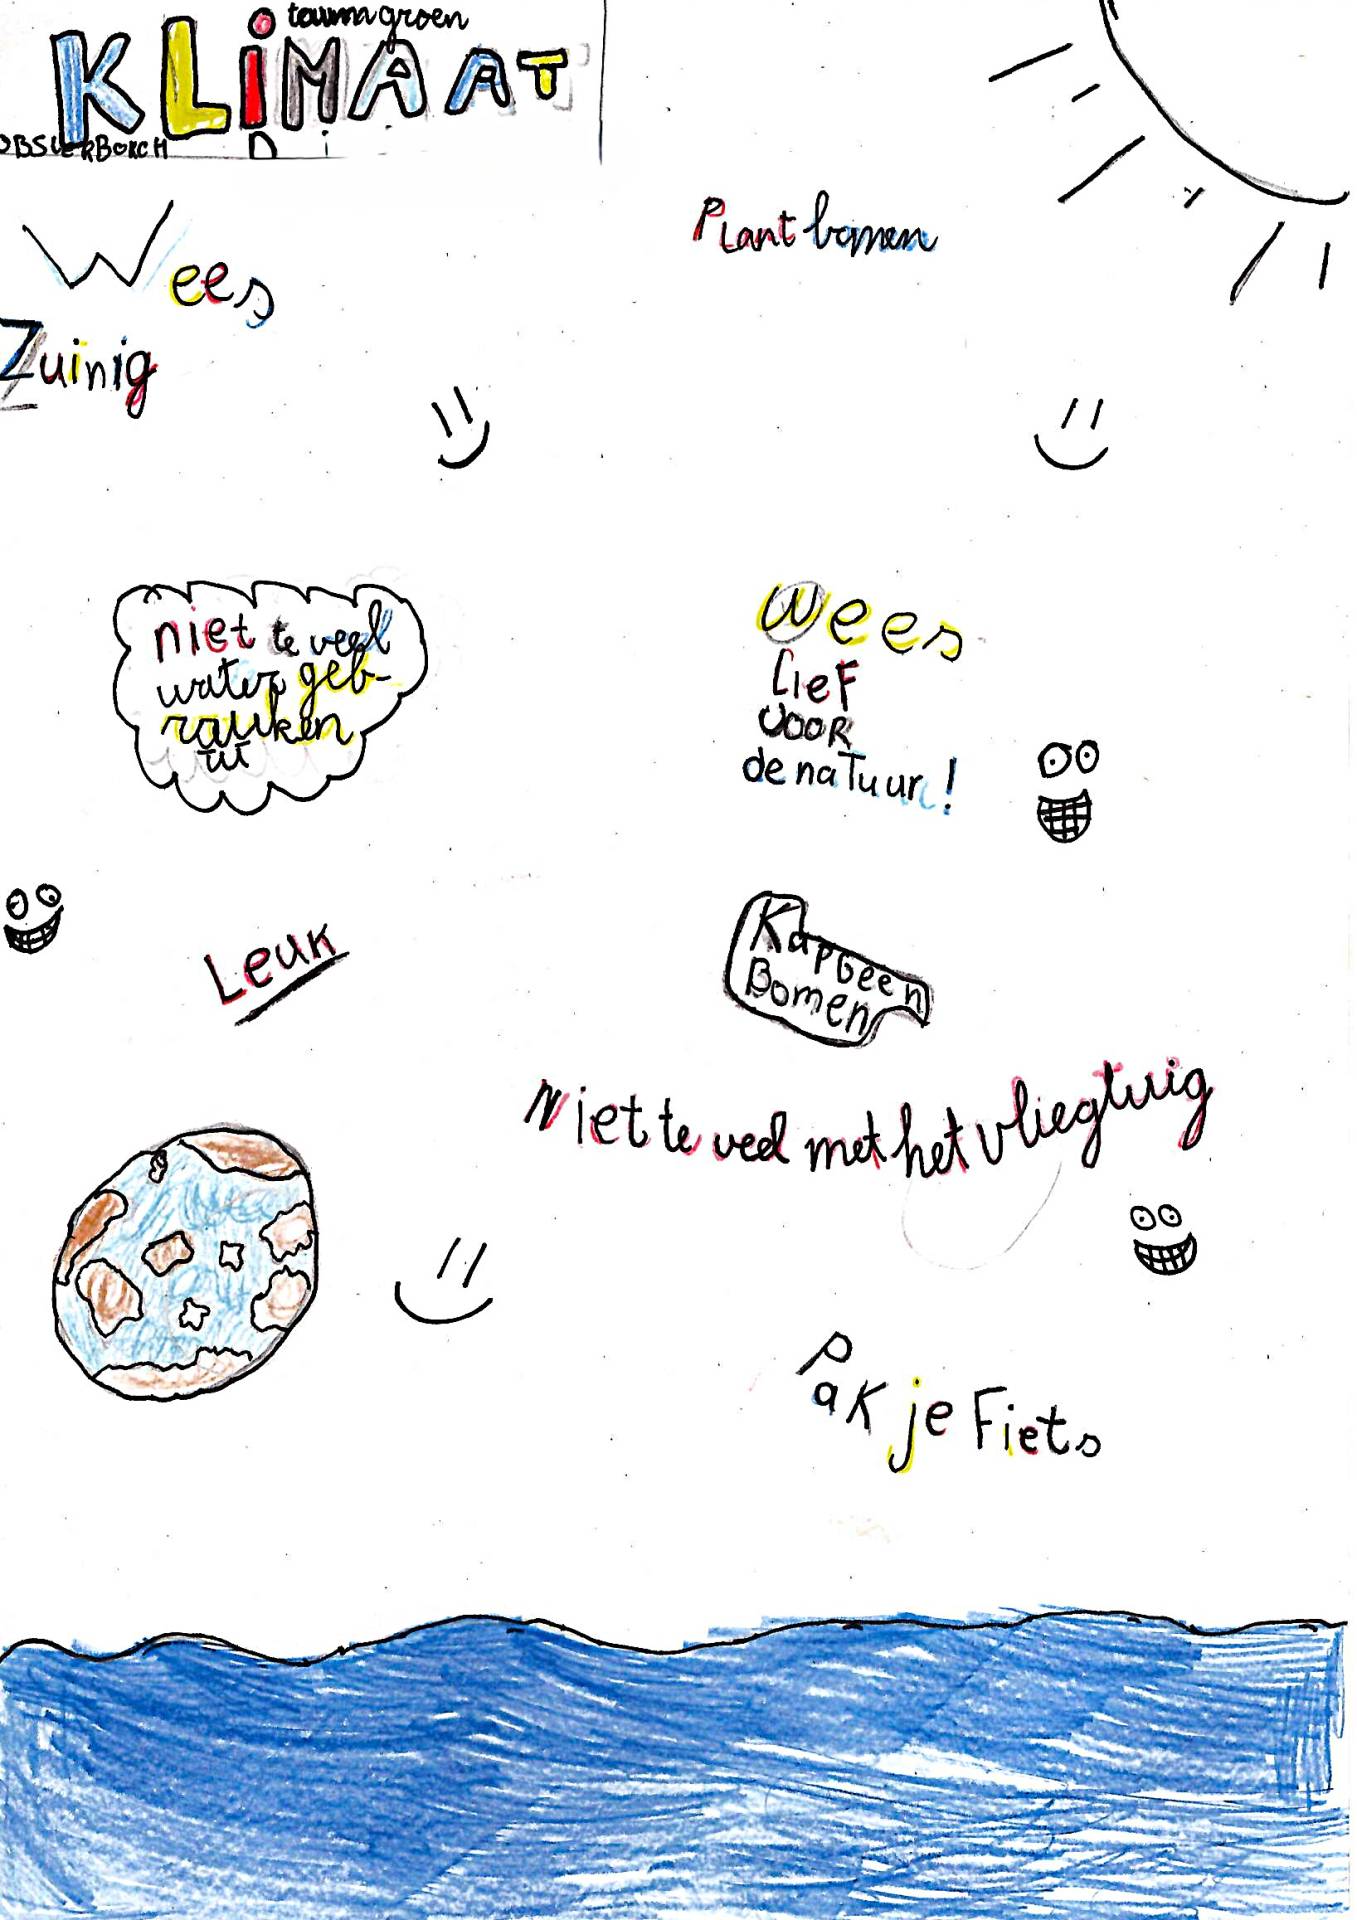 groen
KLiMAAT
Wees
Zuinig
Plant bomen
niet te veel
water geb-
rauken
Wees
Lief
voor
de naTuur!
Leuk
Kap Geen
Bomen
Niet te veel met het vliegtuig
Pak je Fiets